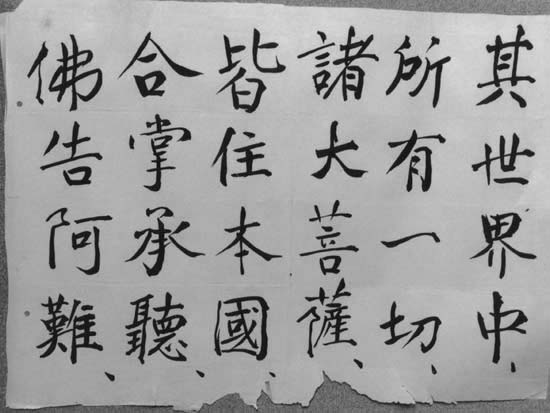 其世界中、
所有一切、
諸大菩薩、
皆住本國、
合掌承聽、
佛告阿難、